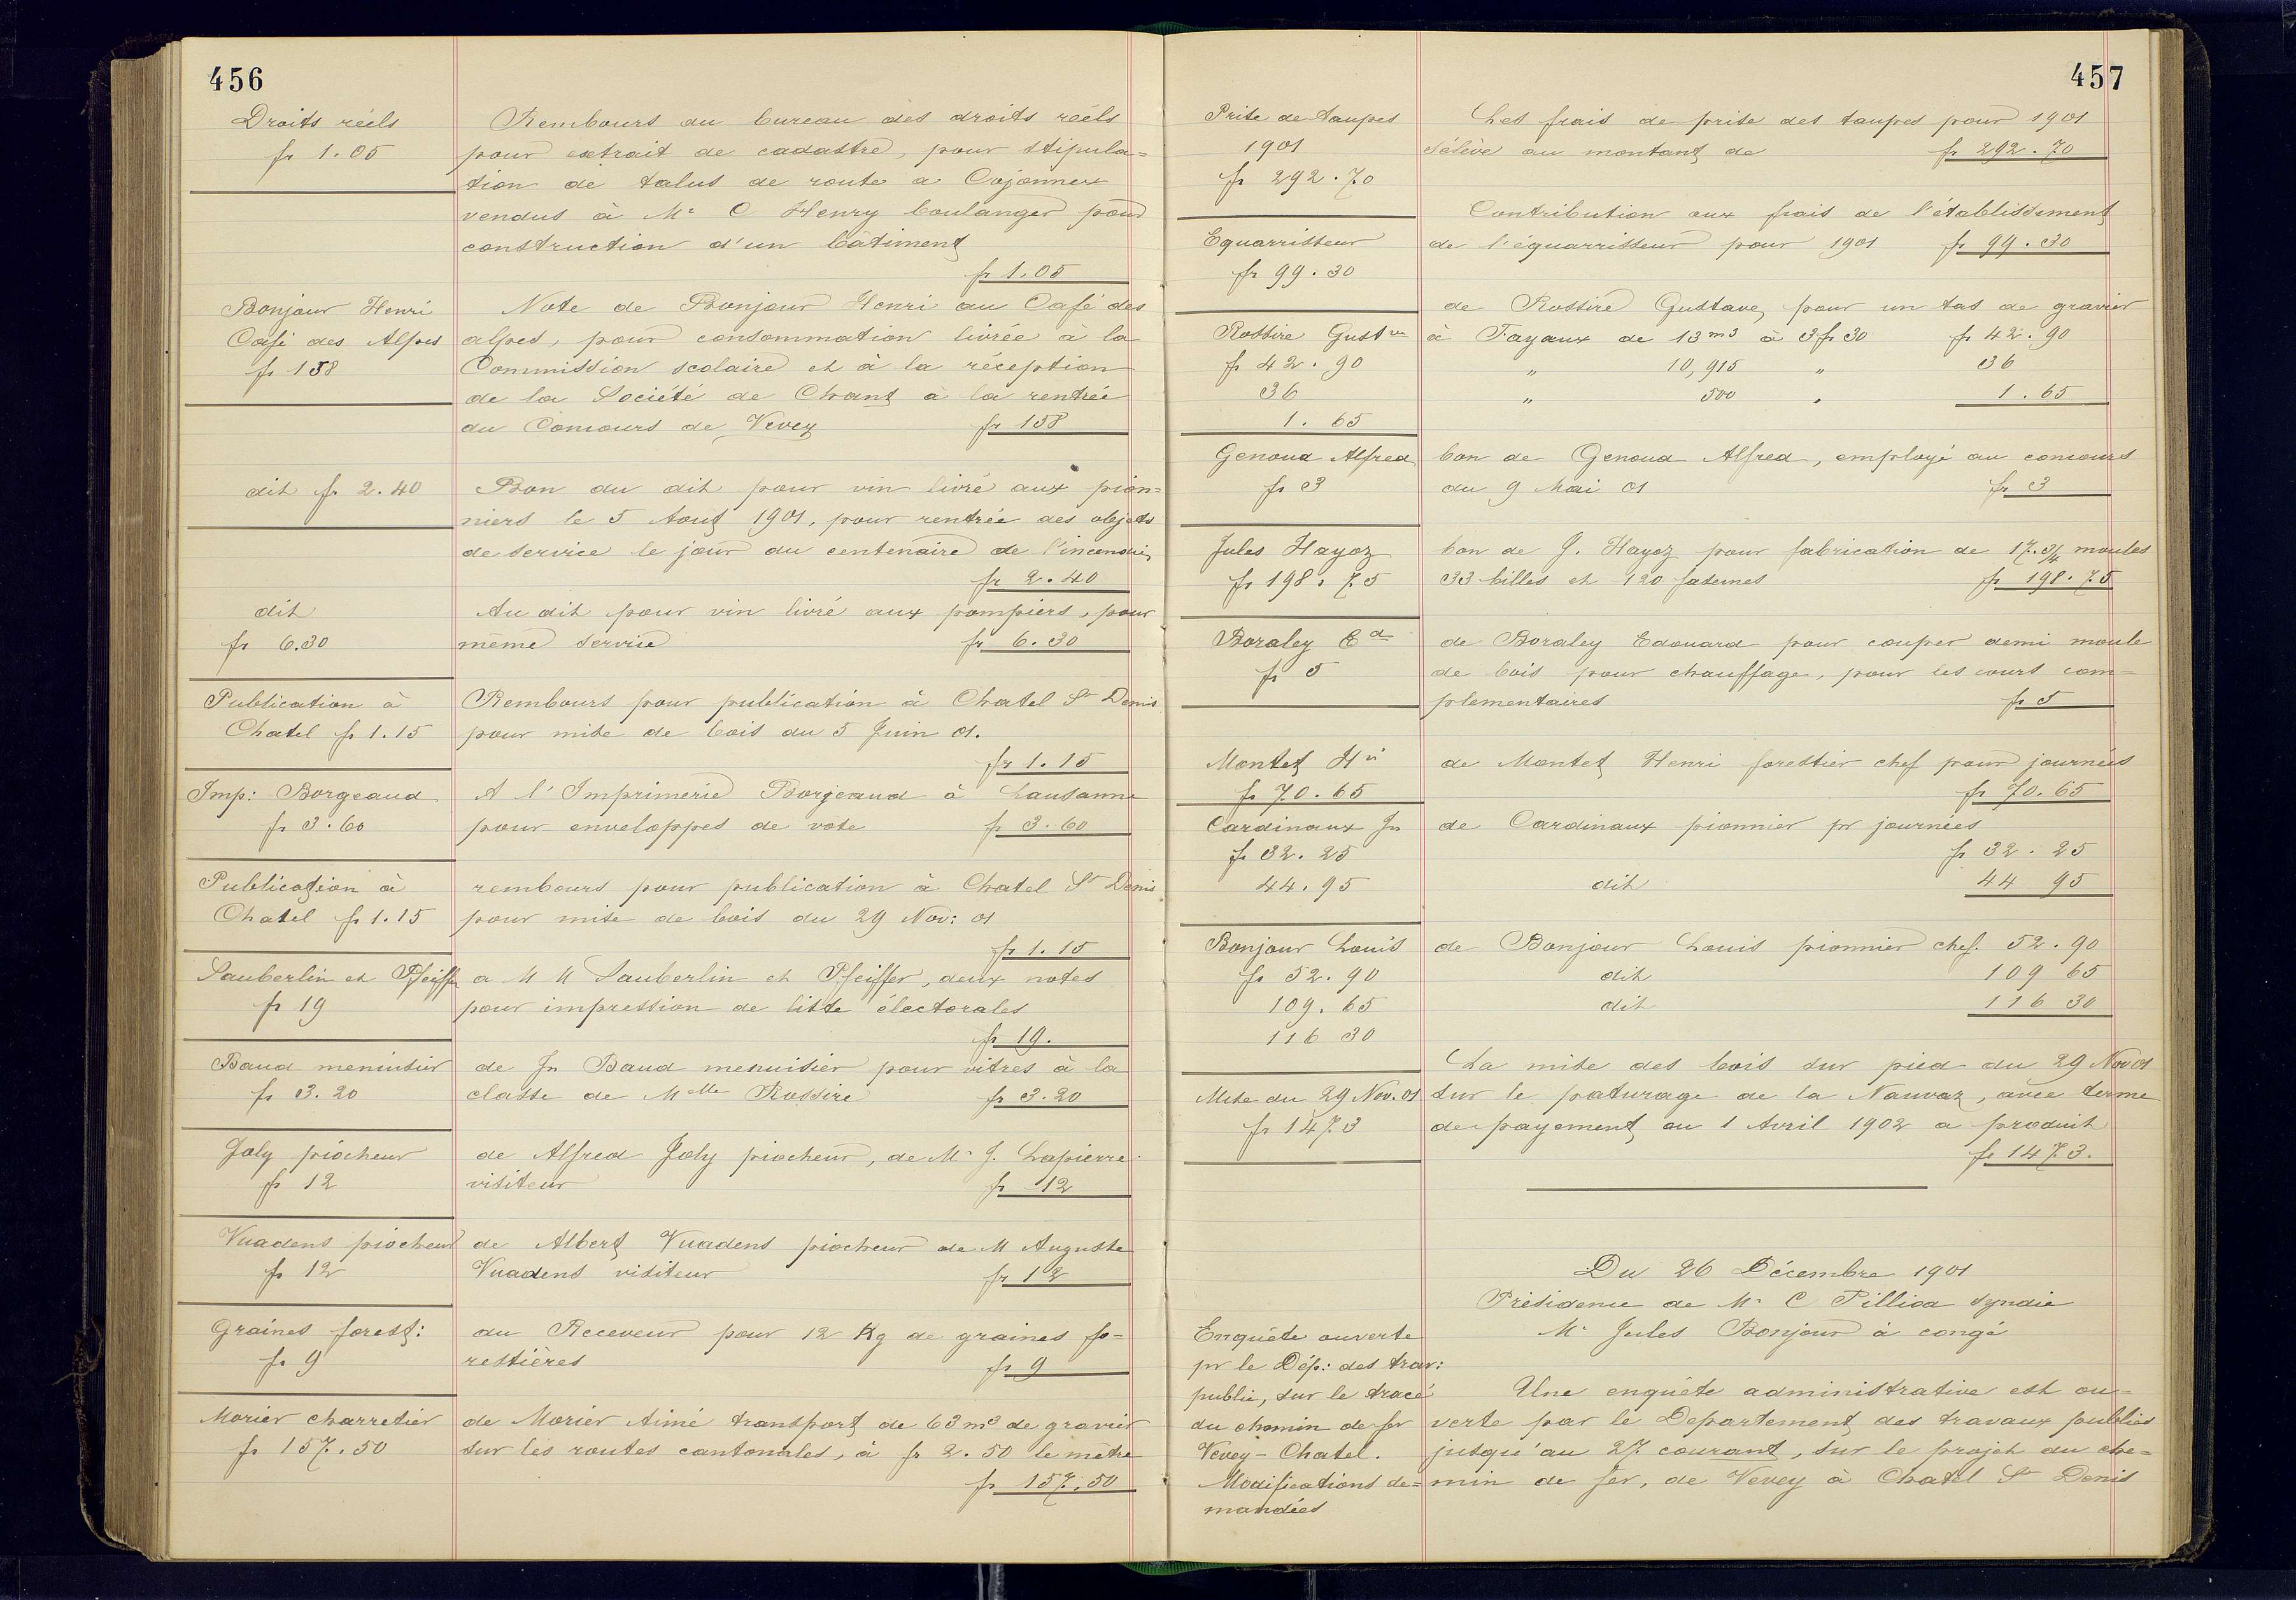 456
Droits réels
fr 1.05
Rembours au bureau des droits réels
pour extrait de cadastre, pour stipula=
tion de talus de route a Cojonnex
vendus à Mr C Henry boulanger pour
construction d'un bâtiment
fr 1.05
Bonjour Henri
Café des Alpes
fr 158
Note de Bonjour Henri au Café des
alpes, pour consommation livrée à la
Commission scolaire et à la réception
de la Société de Chant à la rentrée
du Concours de Vevey
fr 158
dit fr 2.40
Bon du dit pour vin livré aux pion=
niers le 5 Aout 1901, pour rentrée des objets
de service le jour du centenaire de l'incendie,
fr 2.40
dit
fr 6.30
Au dit pour vin livré aux pompiers, pour
même service fr 6.30
Publication à
Chatel fr 1.15
Rembours pour publication à Chatel St Denis
pour mise de bois du 5 Juin 01.
fr 1.15
Imp: Borgeaud
fr 3.60
A l'Imprimerie Borgeaud à Lausanne
pour enveloppes de vote fr 3.60
Publication à
Chatel fr 1.15
rembours pour publication à Chatel St Denis
pour mise de bois du 29 Nov: 01
fr 1.15
Sauberlin et Pfeiffer
fr 19
a M M Sauberlin et Pfeiffer, deux notes
pour impression de liste électorales
fr 19.
Baud menuisier
fr 3.20
de Jn Baud menuisier pour vitres à la
classe de Mlle Rossire fr 3.20
Joly piocheur
fr 12
de Alfred Joly piocheur, de Mr J. Lapierre
visiteur fr 12
Vuadens piocheur
fr 12
de Albert Vuadens piocheur de M Auguste
Vuadens visiteur fr 12
Graines forest:
fr 9
au Receveur pour 12 Kg de graines fo=
restières fr 9
Morier charretier
fr 157.50
de Morier Aimé transport de 63 m3 de gravier
sur les routes cantonales, à fr 2.50 le mètre
fr 157.50
457
Prise de taupes
1901
fr 292.70
Les frais de prise des taupes pour 1901
s'élève au montant de fr 292.70
Equarrisseur
fr 99.30
Contribution aux frais de l'établissement
de l'équarrisseur pour 1901 fr 99.30
Rossire Gustve
fr 42.90
36
1.65
de Rossire Gustave, pour un tas de gravier
à Fayaux de 13 m3 à 3 fr 30 fr 42.90
" 10,915 " 36
" 500 " 1.65
Genoud Alfred
fr 3
bon de Genoud Alfred, employé au concours
du 9 Mai 01 fr 3
Jules Hayoz
fr 198.75
bon de J. Hayoz pour fabrication de 17.3/4 moules
33 billes et 120 facines fr 198.75
Boraley Ed
fr 5
de Boraley Edouard pour couper demi moule
de bois pour chauffage, pour les cours com=
plementaires fr 5
Montet Hri
fr 70.65
de Montet Henri forestier chef pour journées
fr 70.65
Cardinaux Jn
fr 32.25
44.95
de Cardinaux pionnier pr journées
fr 32.25
dit 44 95
Bonjour Louis
fr 52.90
109.65
116 30
de Bonjour Louis pionnier chef. 52.90
dit 109 65
dit 116 30
Mise du 29 Nov. 01
fr 1473
La mise des bois sur pied du 29 Nov 01
sur le paturage de la Nauvaz, avec terme
de payement au 1 Avril 1902 a produit
fr 1473.
Du 26 Décembre 1901
Présidence de Mr C Pilliod syndic
Mr Jules Bonjour à congé
Enquête ouverte
pr le Dép: des trav:
public, sur le tracé
du chemin de fer
Vevey - Chatel.
Modifications de=
mandées
Une enquête administrative est ou=
verte par le Departement des travaux publics
jusqu'au 27 courant, sur le projet du che=
min de fer, de Vevey à Chatel St Denis